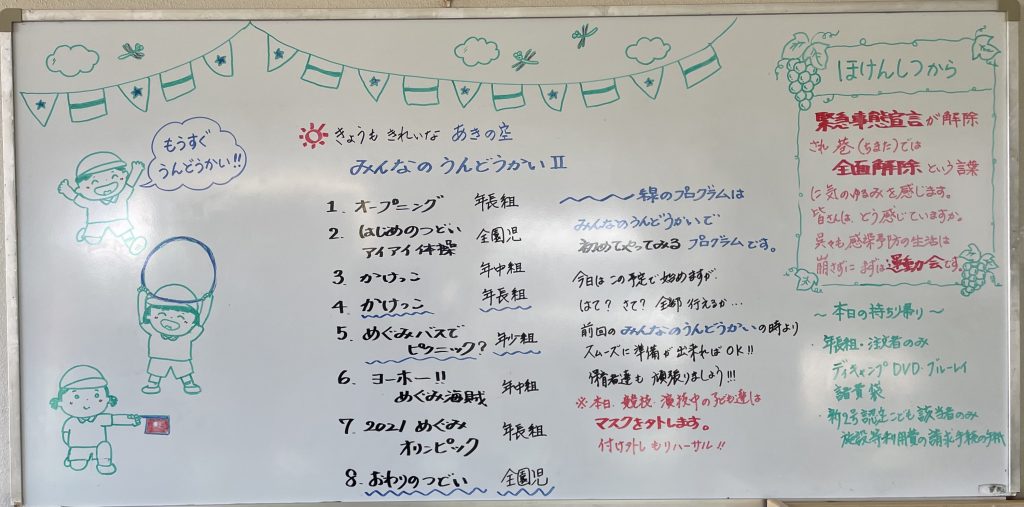 もうすぐ
うんどうかい!!
きょうも きれいな あきの空
みんなの うんどうかいⅡ
1. オープニング 年長組
2. はじめのつどい
アイアイ体操 全園児
3. かけっこ 年中組
4. かけっこ 年長組
5. めぐみバスで
ピクニック? 年少組
6. ヨーホー!!
めぐみ海賊 年中組
7. 2021 めぐみ
オリンピック 年長組
8. おわりのつどい 全園児
線のプログラムは
みんなのうんどうかいで
初めてやってみる プログラムです。
今日は この予定で 始めますが
はて? さて? 全部 行えるか…
前回の みんなのうんどうかい の時より
スムーズに 準備が 出来れば OK!!
保育者達も 頑張りましょう!!!
※本日、競技・演技中の子ども達は
マスクを外します。
付け外しもリハーサル!!
ほけんしつから
緊急事態宣言が解除
され 巷(ちまた)では
全面解除という言葉
に気のゆるみを感じます。
皆さんは、どう感じていますか。
呉々も感染予防の生活は
崩さずに まずは運動会です。
〜 本日の持ち帰り 〜
・年長組・注文者のみ
デイキャンプDVD・ブルーレイ
諸費袋
・新2号認定こども該当者のみ
施設等利用費の請求手続の手紙